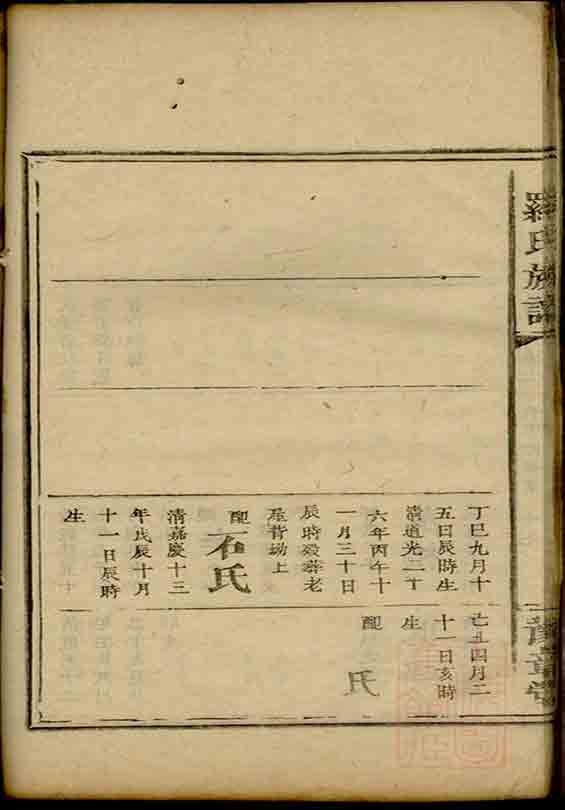 羅氏族譜
豫章堂
丁巳九月十
五日辰時生
清道光二十
六年丙午十
一月三十日
辰時歿葬老
屋背坳上
配石氏
清嘉慶十三
年戊辰十月
十一日辰時
生
己丑四月二
十一日亥時
生
配 氏